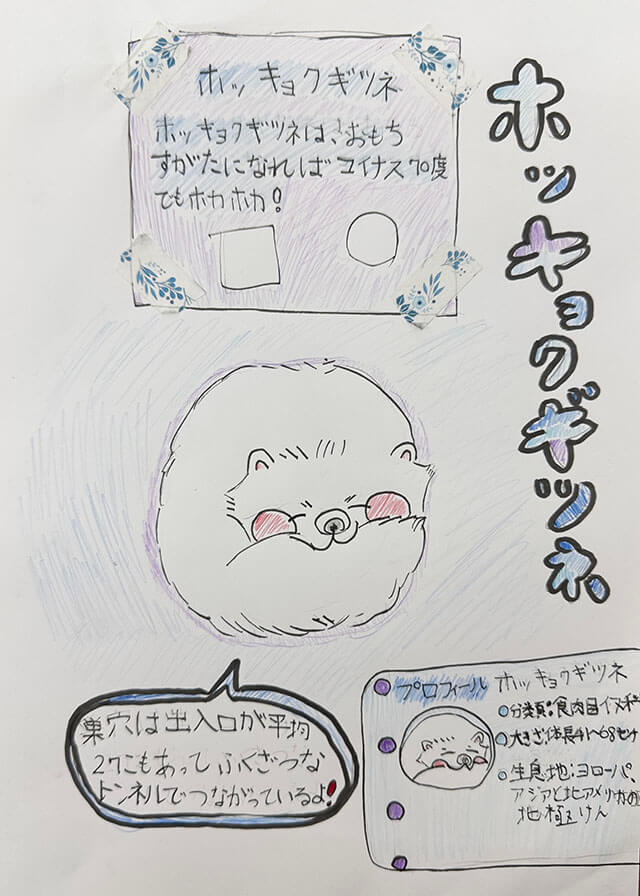 ホッキョクギツネ
ホッキョクギツネ
ホッキョクギツネは、おもち
すがたになればマイナス70度
でもホカホカ!
巣穴は出入口が平均
27こもあってふくざつな
トンネルでつながっているよ!
プロフィール ホッキョクギツネ
分類:食肉目イヌ科
大きさ:体長41~68センチ
生息地:ヨーロッパ、
アジアと北アメリカの
北極けん